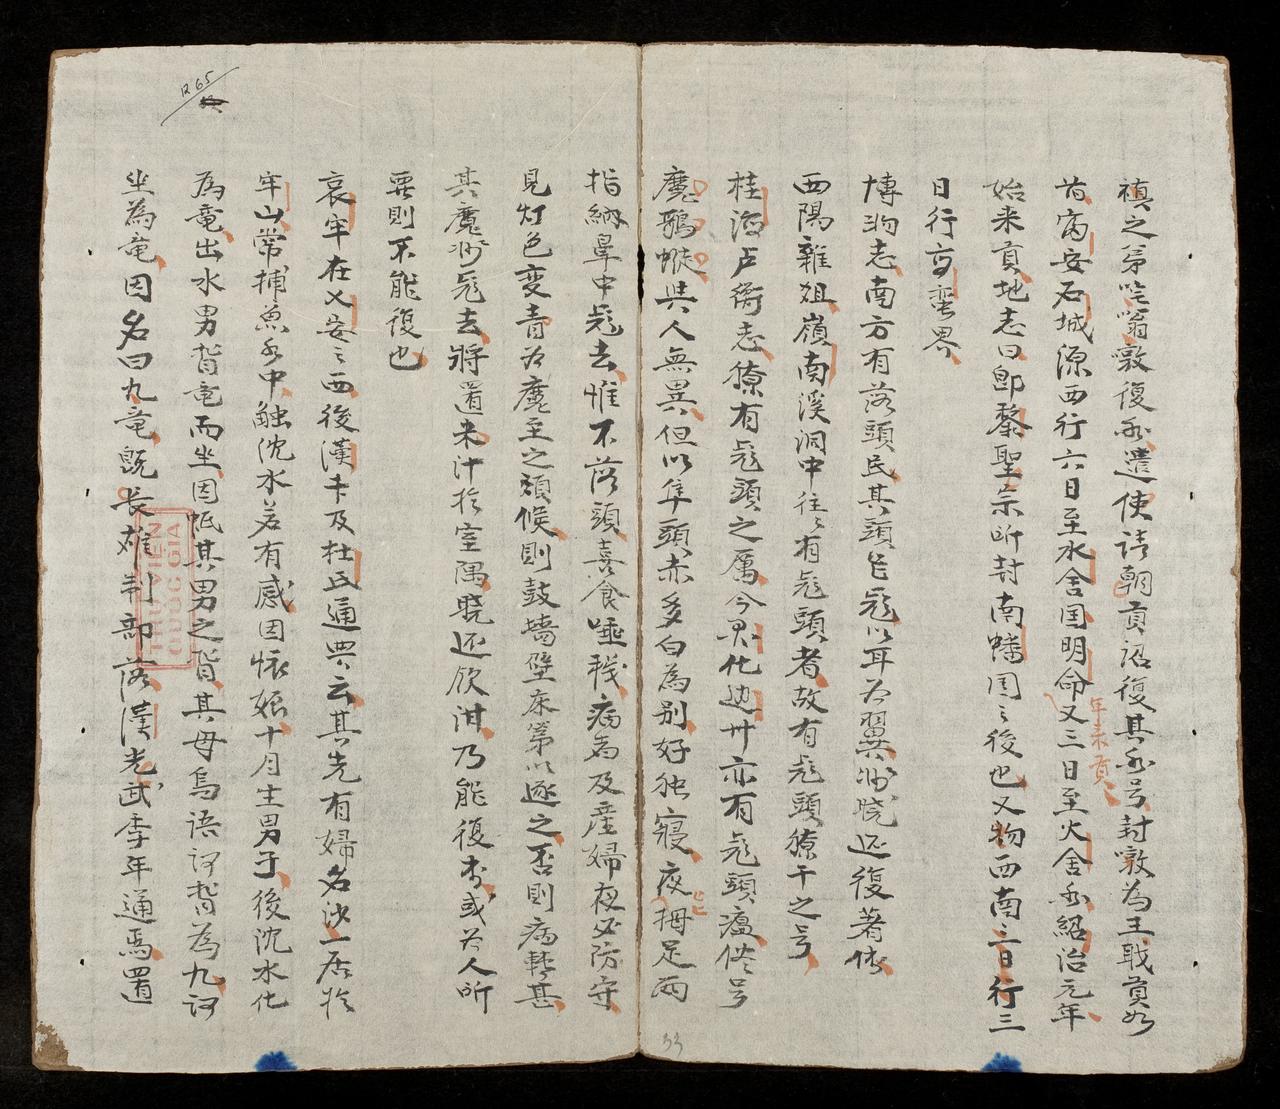 禛之弟吃嗡噋復永遣使請朝貢詔復其永号封噋為王職貢如
昔富安石城源西行六日至水舍国明命又三日至火舍永紹治元年
年来貢
始来貢地志曰即黎聖宗所封南蟠国之後也又物西南三日行三
日行高蛮界
博物志南方有落頭民其頭能飛以耳為翼將曉还復著体
西陽雜俎嶺南溪洞中往〻有飛頭者故有飛頭獠子之号
桂海虞衡志獠有飛頭之属今興化边卅亦有飛頭瘟俗号
魔鶏蜒共人無異但以隼頭赤多白為别好独寝夜能拇足兩
指納鼻中飛去惟不落頭喜食唾穢病者及産婦夜必防守
見灯色变青為魔至之頄候則鼓墻壁床第以逐之否則病轉甚
其魔將飛去將置米汁於室隅曉还飲泔乃能復本或為人所
耍則不能復也
哀牢在乂安之西後漢卡及杜氏通典云其先有婦名沙一居於
牢山常捕魚水中触沈水若有感因怀娠十月生男子後沈水化
為竜出水男背竜而坐因舐其男之背其母鳥語謂背為九謂
坐為竜因名曰九竜既長雄制部落漢光武季年通焉置
R 65
33
THƯ VIỆN
QUỐC GIA